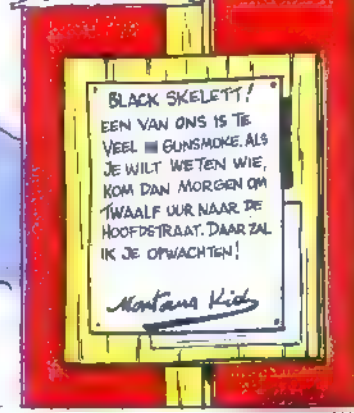 BLACK SKELETT!
EEN VAN ONS IS TE
VEEL GUNSMOKE. ALS
JE WILT WETEN WIE,
KOM DAN MORGEN OM
TWAALF UUR NAAR DE
HOOFDSTRAAT. DAAR ZAL
IK JE OPWACHTEN!
Montana Kid